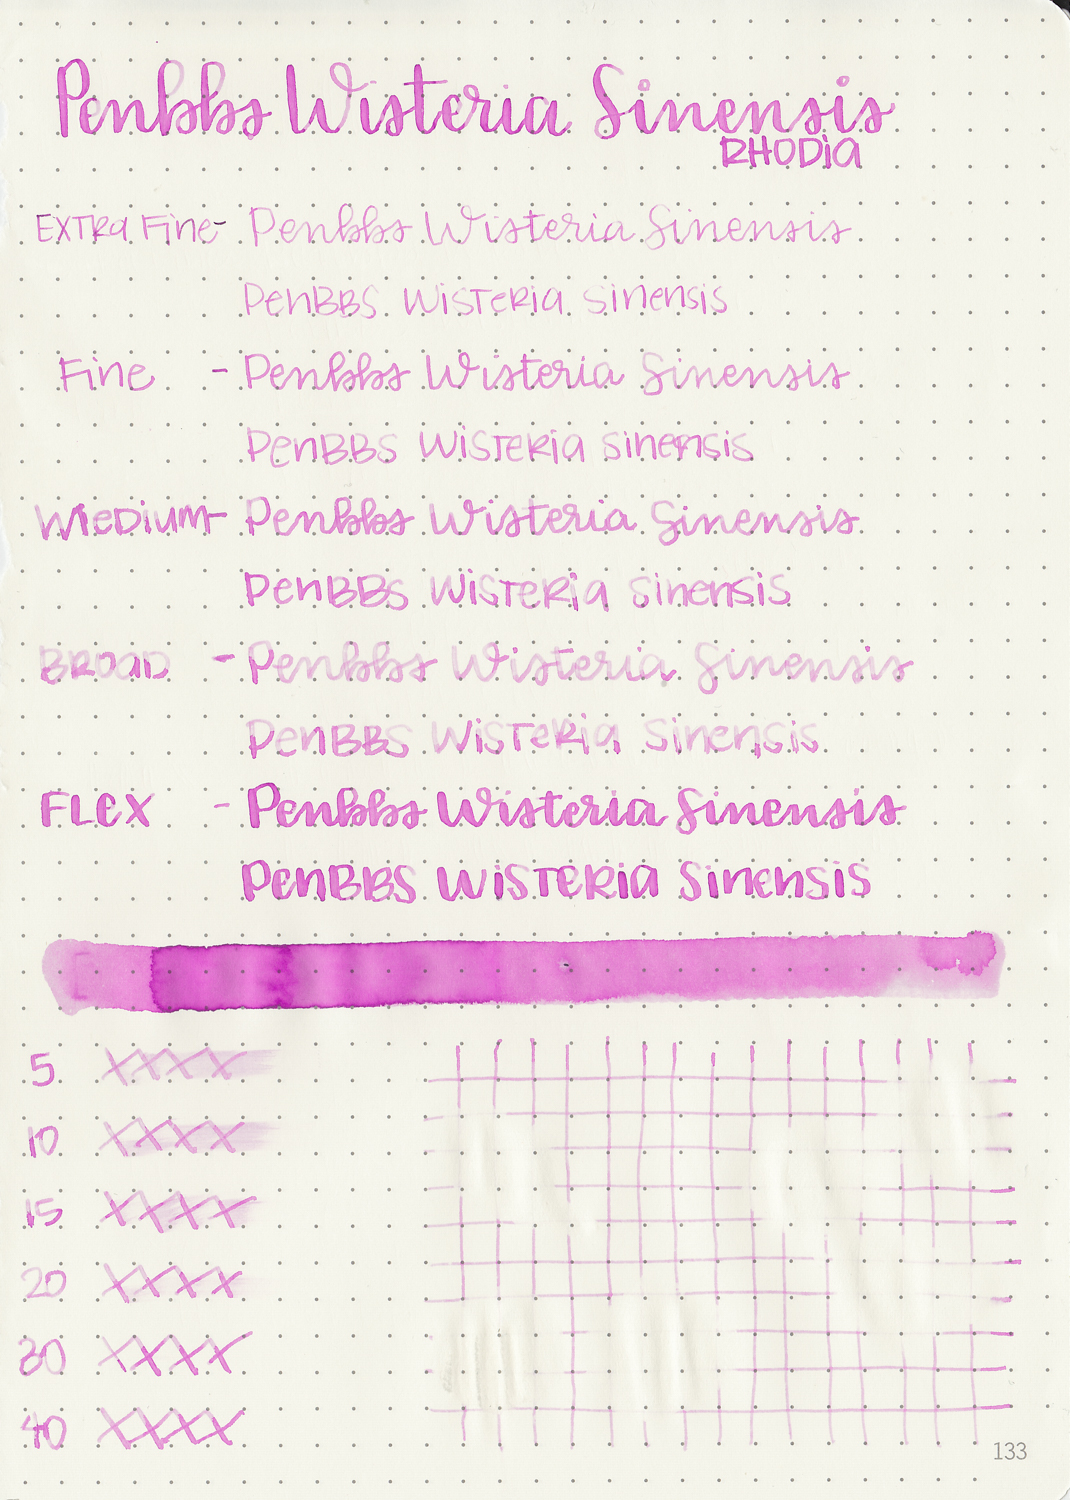 Penbbs Wisteria Sinensis
RHODIA
EXTRA Fine - Penbbs Wisteria Sinensis
PenBBS WiSTeRiA Sinensis
Fine - Penbbs Wisteria Sinensis
PenBBS WiSTeRiA Sinensis
MeDium - Penbbs Wisteria Sinensis
PenBBS WiSTeRiA Sinensis
BROAD - Penbbs Wisteria Sinensis
PenBBS WiSTeRiA Sinensis
FLeX - Penbbs Wisteria Sinensis
PenBBS WiSTeRiA Sinensis
5 XXXX
10 XXXX
15 XXXX
20 XXXX
30 XXXX
40 XXXX
133